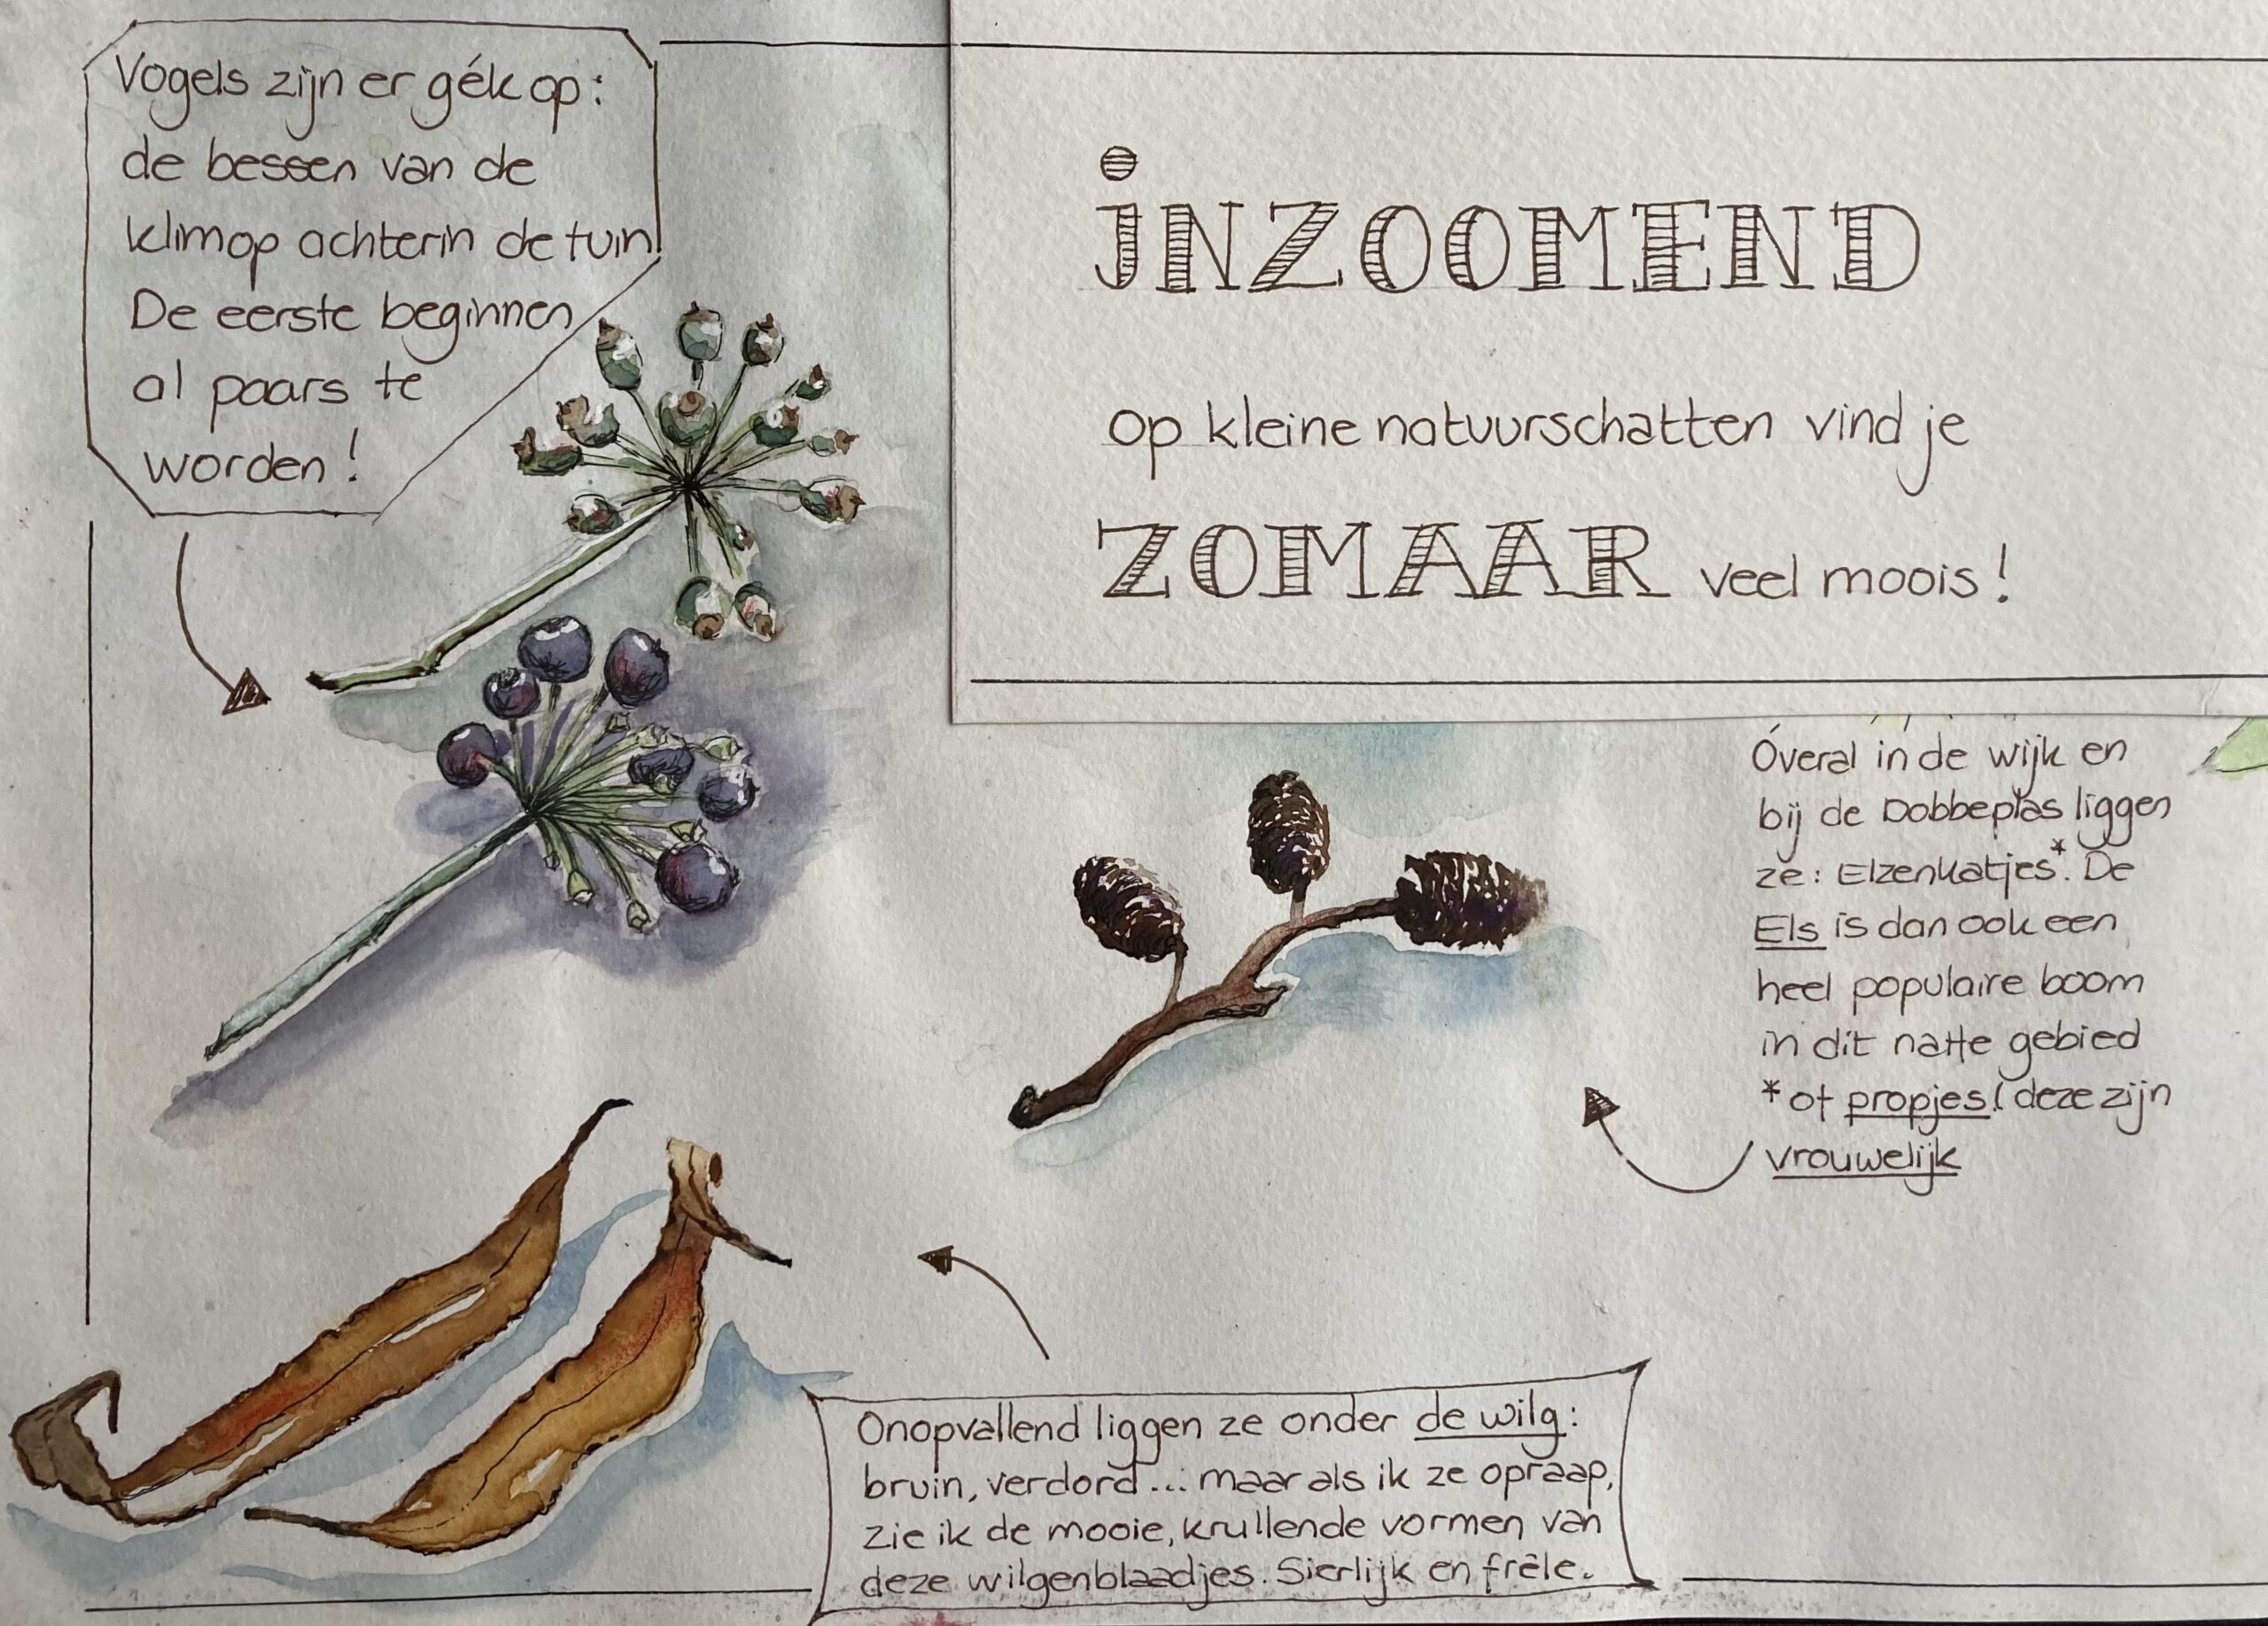 Vogels zijn er gék op:
de bessen van de
klimop achterin de tuin!
De eerste beginnen
al paars te
worden!
iNZOOMEND
op kleine natuurschatten vind je
ZOMAAR veel moois!
Óveral in de wijk en
bij de Dobbeplas liggen
ze: Elzenkatjes*. De
Els is dan ook een
heel populaire boom
in dit natte gebied
*of propjes! deze zijn
vrouwelijk
Onopvallend liggen ze onder de wilg:
bruin, verdord... maar als ik ze opraap,
zie ik de mooie, krullende vormen van
deze wilgenblaadjes. Sierlijk en frêle.